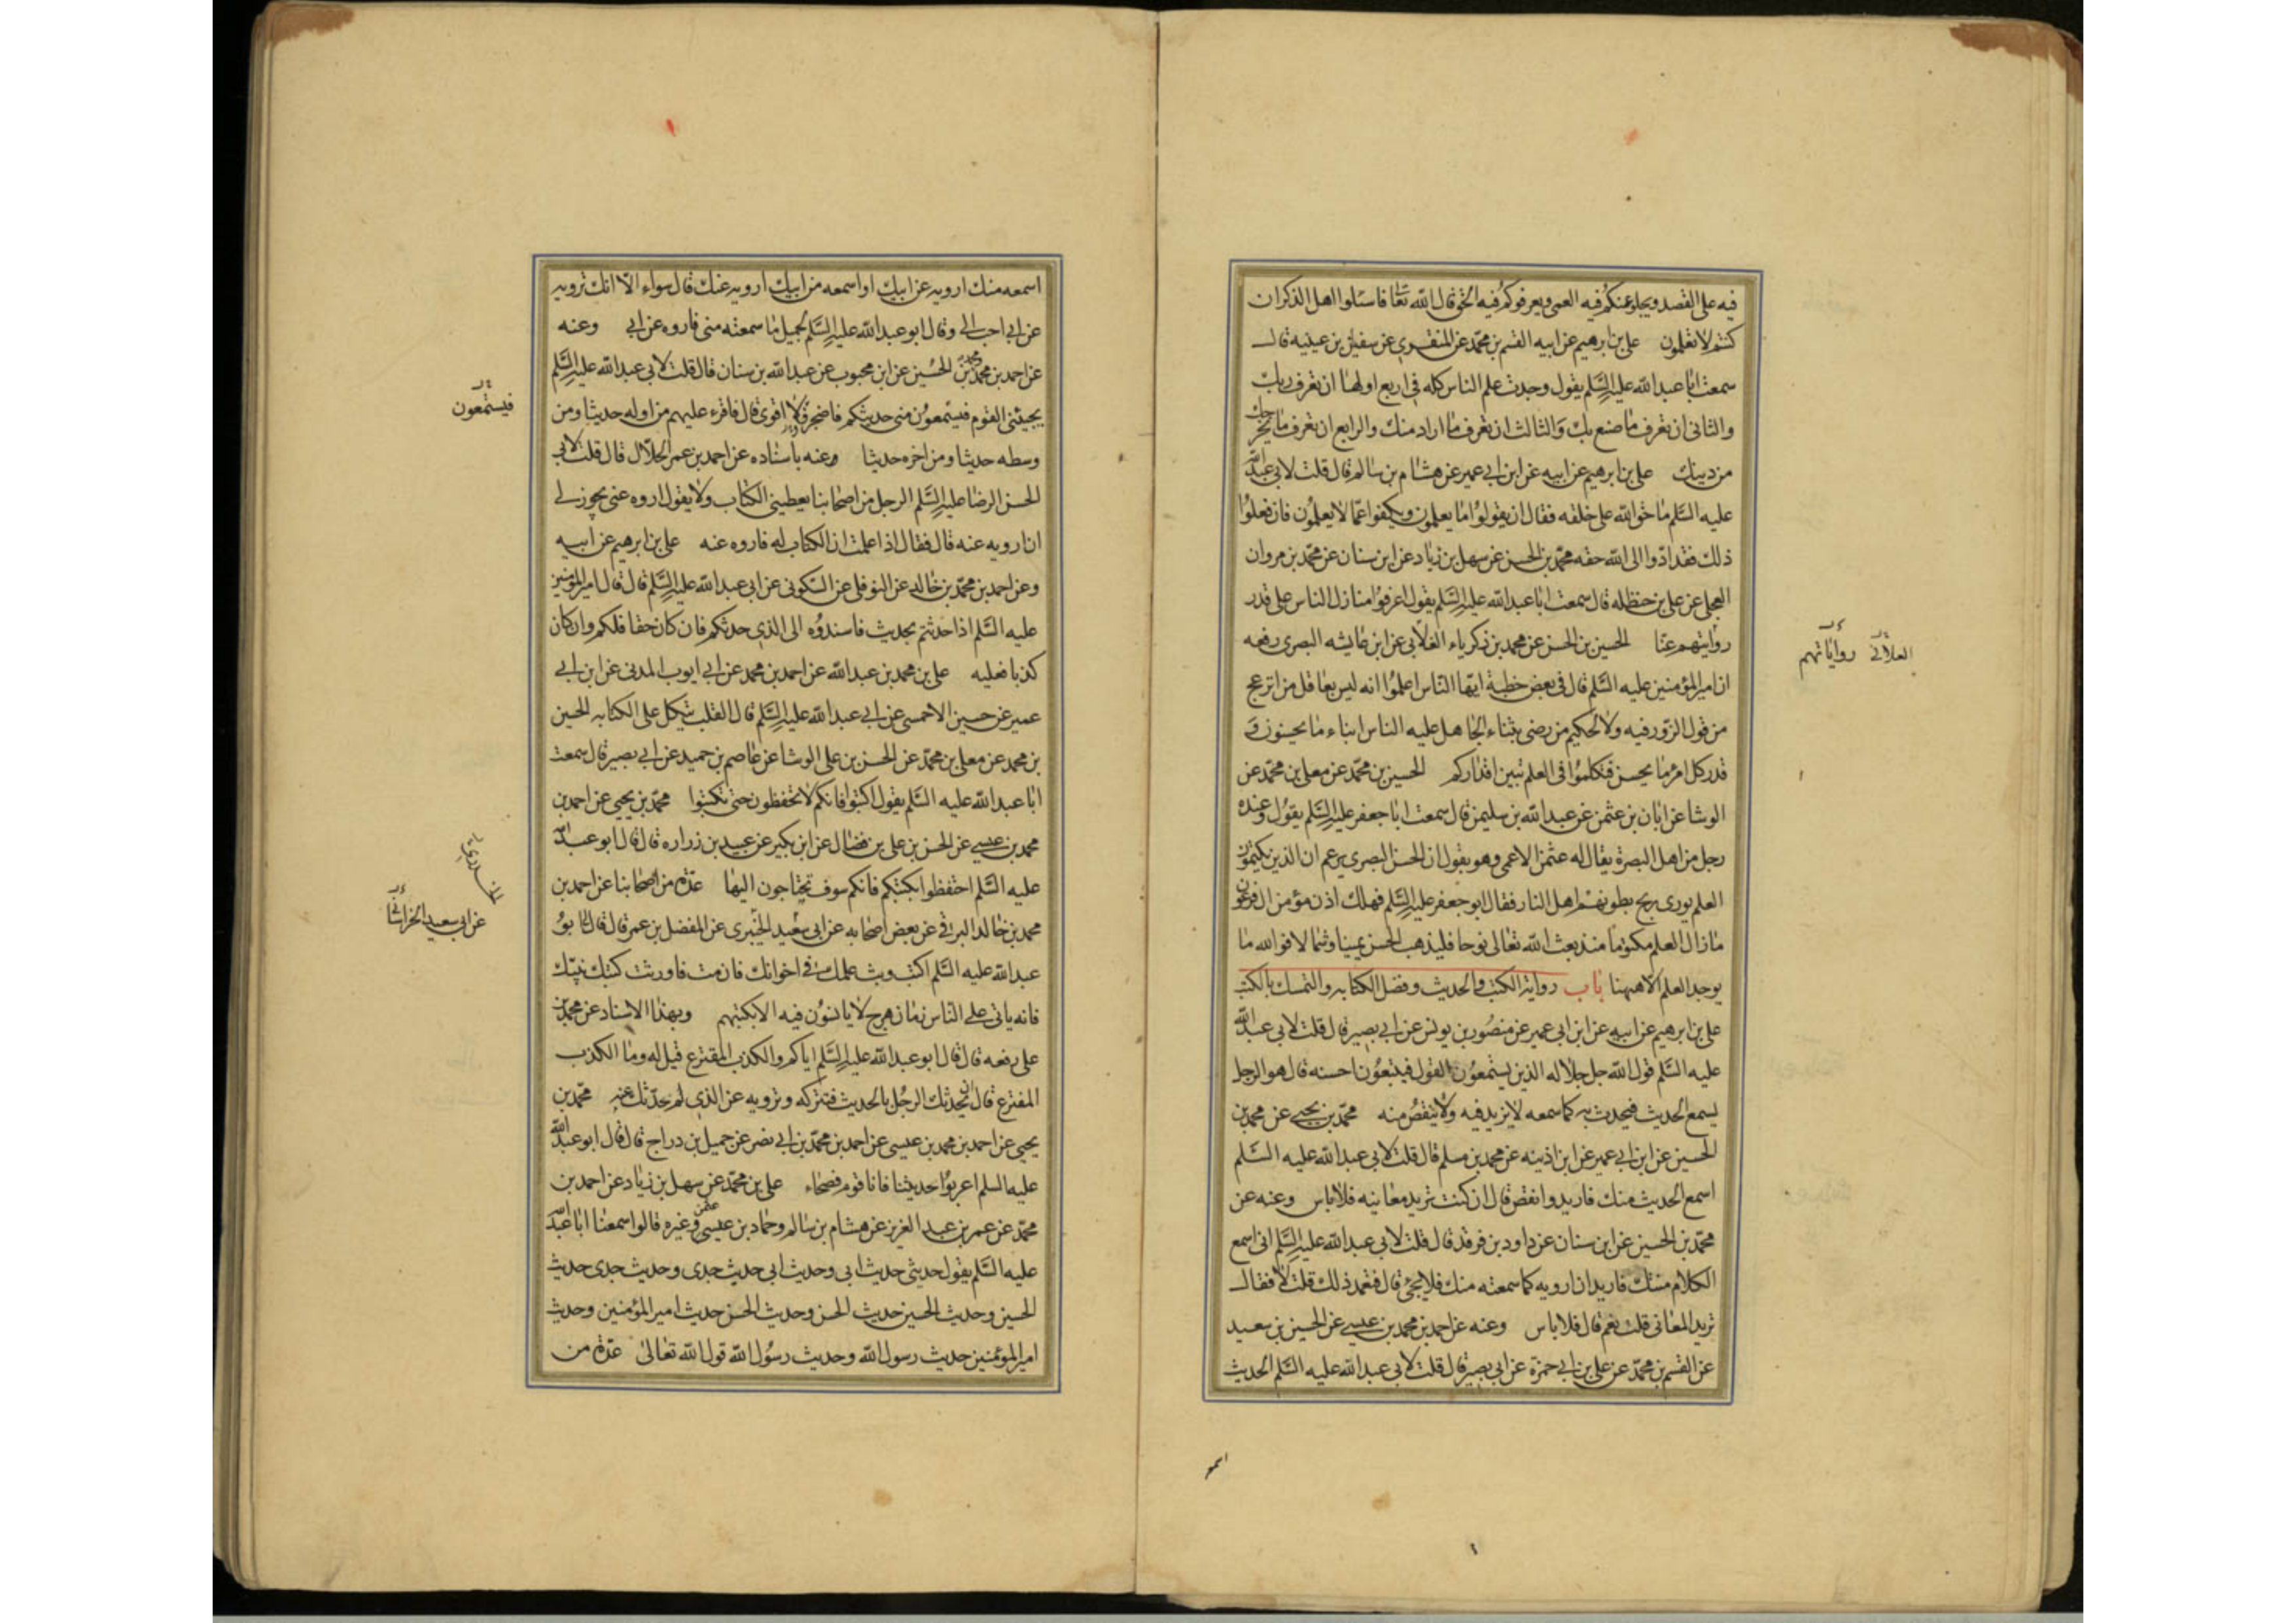 فيه على القصد ويجلو عنكم فيه العمى ويعرفوكم فيه الحق قال الله تعا فاسئلوا اهل الذكر ان
كنتم لا تعلمون على بن ابرهيم عن ابيه القسم بن محمد عن المنقرى عن سفين بن عيينه قال
سمعت ابا عبد الله عليه السلم يقول وجدت علم الناس كله فى اربع اولها ان تعرف ربك
والثانى ان تعرف ما صنع بك والثالث ان تعرف ما اراد منك والرابع ان تعرف ما يخرجك
من دينك على بن ابرهيم عن ابيه عن ابن ابى عمير عن هشام بن سالم قال قلت لابى عبد الله
عليه السلم ما حق الله على خلقه فقال ان يقولوا ما يعلمون ويكفوا عما لا يعلمون فان فعلوا
ذلك فقد ادوا الى الله حقه محمد بن الحسن عن سهل بن زياد عن ابن سنان عن محمد بن مروان
العجلى عن على بن حنظله قال سمعت ابا عبد الله عليه السلم يقول اعرفوا منازل الناس على قدر
روايتهم عنا الحسين بن الحسن عن محمد بن زكرياء الغلابى عن ابن عايشه البصرى رفعه
ان امير المؤمنين عليه السلم قال فى بعض خطبة ايها الناس اعلموا انه ليس بعاقل من انزعج
من قول الزور فيه ولا لحكيم من رضى بثناء الجاهل عليه الناس ابناء ما يحسنون و
قدر كل امرء ما يحسن فتكلموا فى العلم تبين اقداركم الحسين بن محمد عن معلى بن محمد عن
الوشا عن ابان بن عثمن عن عبد الله بن سليمن قال سمعت ابا جعفر عليه السلم يقول وعنده
رجل من اهل البصرة يقال له عثمن الاعمى وهو يقول ان الحسن البصرى يزعم ان الذين يكتمون
العلم يوذى ريح بطونهم اهل النار فقال ابو جعفر عليه السلم فهلك اذن مؤمن ال فرعون
ما زال العلم مكتوما منذ بعث الله تعالى نوحا فليذهب الحسن يمينا وشمالا فوالله ما
يوجد العلم الا ههنا باب رواية الكتب والحديث وفضل الكتابه والتمسك بالكتب
على بن ابرهيم عن ابيه عن ابن ابى عمير عن منصور بن يونس عن ابى بصير قال قلت لابى عبد الله
عليه السلم قول الله جل جلاله الذين يستمعون القول فيتبعون احسنه قال هو الرجل
يسمع الحديث فيحدث به كما سمعه لا يزيد فيه ولا ينقص منه محمد بن يحيى عن محمد بن
الحسين عن ابن ابى عمير عن ابن اذينه عن محمد بن مسلم قال قلت لابى عبد الله عليه السلم
اسمع الحديث منك فازيد وانقص قال ان كنت تريد معانيه فلا باس وعنه عن
محمد بن الحسين عن ابن سنان عن داود بن فرقد قال قلت لابى عبد الله عليه السلم انى اسمع
الكلام منك فاريد ان ارويه كما سمعته منك فلا يجئ قال فتعمد ذلك قلت لا فقال
تريد المعانى قلت نعم قال فلا باس وعنه عن احمد بن محمد بن عيسى عن الحسين بن سعيد
عن القسم بن محمد عن على بن ابى حمزة عن ابى بصير قال قلت لابى عبد الله عليه السلم الحديث
العلائى رواياتهم
اسمعه
اسمعه منك ارويه عن ابيك او اسمعه من ابيك ارويه عنك قال سواء الا انك ترويه
عن ابى احب الى وقال ابو عبد الله عليه السلم لجميل ما سمعته منى فاروه عن ابى وعنه
عن احمد بن محمد ومحمد بن الحسين عن ابن محبوب عن عبد الله بن سنان قال قلت لابى عبد الله عليه السلم
يجيئنى القوم فيستمعون منى حديثكم فاضجر ولا اقوى قال فاقرء عليهم من اوله حديثا ومن
وسطه حديثا ومن اخره حديثا وعنه باسناده عن احمد بن عمر الحلال قال قلت لابى
الحسن الرضا عليه السلم الرجل من اصحابنا يعطينى الكتاب ولا يقول اروه عنى يجوز لى
ان ارويه عنه قال فقال اذا علمت ان الكتاب له فاروه عنه على بن ابرهيم عن ابيه
وعن احمد بن محمد بن خالد عن النوفلى عن السكونى عن ابى عبد الله عليه السلم قال قال امير المؤمنين
عليه السلم اذا حدثتم بحديث فاسندوه الى الذى حدثكم فان كان حقا فلكم وان كان
كذبا فعليه على بن محمد بن عبد الله عن احمد بن محمد عن ابى ايوب المدنى عن ابن ابى
عمير عن حسين الاحمسى عن ابى عبد الله عليه السلم قال القلب يتكل على الكتابه الحسين
بن محمد عن معلى بن محمد عن الحسن بن على الوشا عن عاصم بن حميد عن ابى بصير قال سمعت
ابا عبد الله عليه السلم يقول اكتبوا فانكم لا تحفظون حتى تكتبوا محمد بن يحيى عن احمد بن
محمد بن عيسى عن الحسن بن على بن فضال عن ابن بكير عن عبيد بن زراره قال قال ابو عبد الله
عليه السلم احتفظوا بكتبكم فانكم سوف تحتاجون اليها عدة من اصحابنا عن احمد بن
محمد بن خالد البرقى عن بعض اصحابه عن ابى سعيد الخيبرى عن المفضل بن عمر قال قال لى ابو
عبد الله عليه السلم اكتب وبث علمك فى اخوانك فان مت فاورث كتبك بنيك
فانه ياتى على الناس زمان هرج لا يانسون فيه الا بكتبهم وبهذا الاسناد عن محمد بن
على رفعه قال قال ابو عبد الله عليه السلم اياكم والكذب المفترع قيل له وما الكذب
المفترع قال ان يحدثك الرجل بالحديث فتتركه وترويه عن الذى لم يحدثك عنه محمد بن
يحيى عن احمد بن محمد بن عيسى عن احمد بن محمد بن ابى نصر عن جميل بن دراج قال قال ابو عبد الله
عليه السلم اعربوا حديثنا فانا قوم فصحاء على بن محمد عن سهل بن زياد عن احمد بن
محمد عن عمر بن عبد العزيز عن هشام بن سالم وحماد بن عيسى عثمن وغيره قالوا سمعنا ابا عبد الله
عليه السلم يقول حديثى حديث ابى وحديث ابى حديث جدى وحديث جدى حديث
الحسين وحديث الحسين حديث الحسن وحديث الحسن حديث امير المؤمنين وحديث
امير المؤمنين حديث رسول الله وحديث رسول الله قول الله تعالى عدة من
فيستمعون
عن ابى سعيد الخراسانى